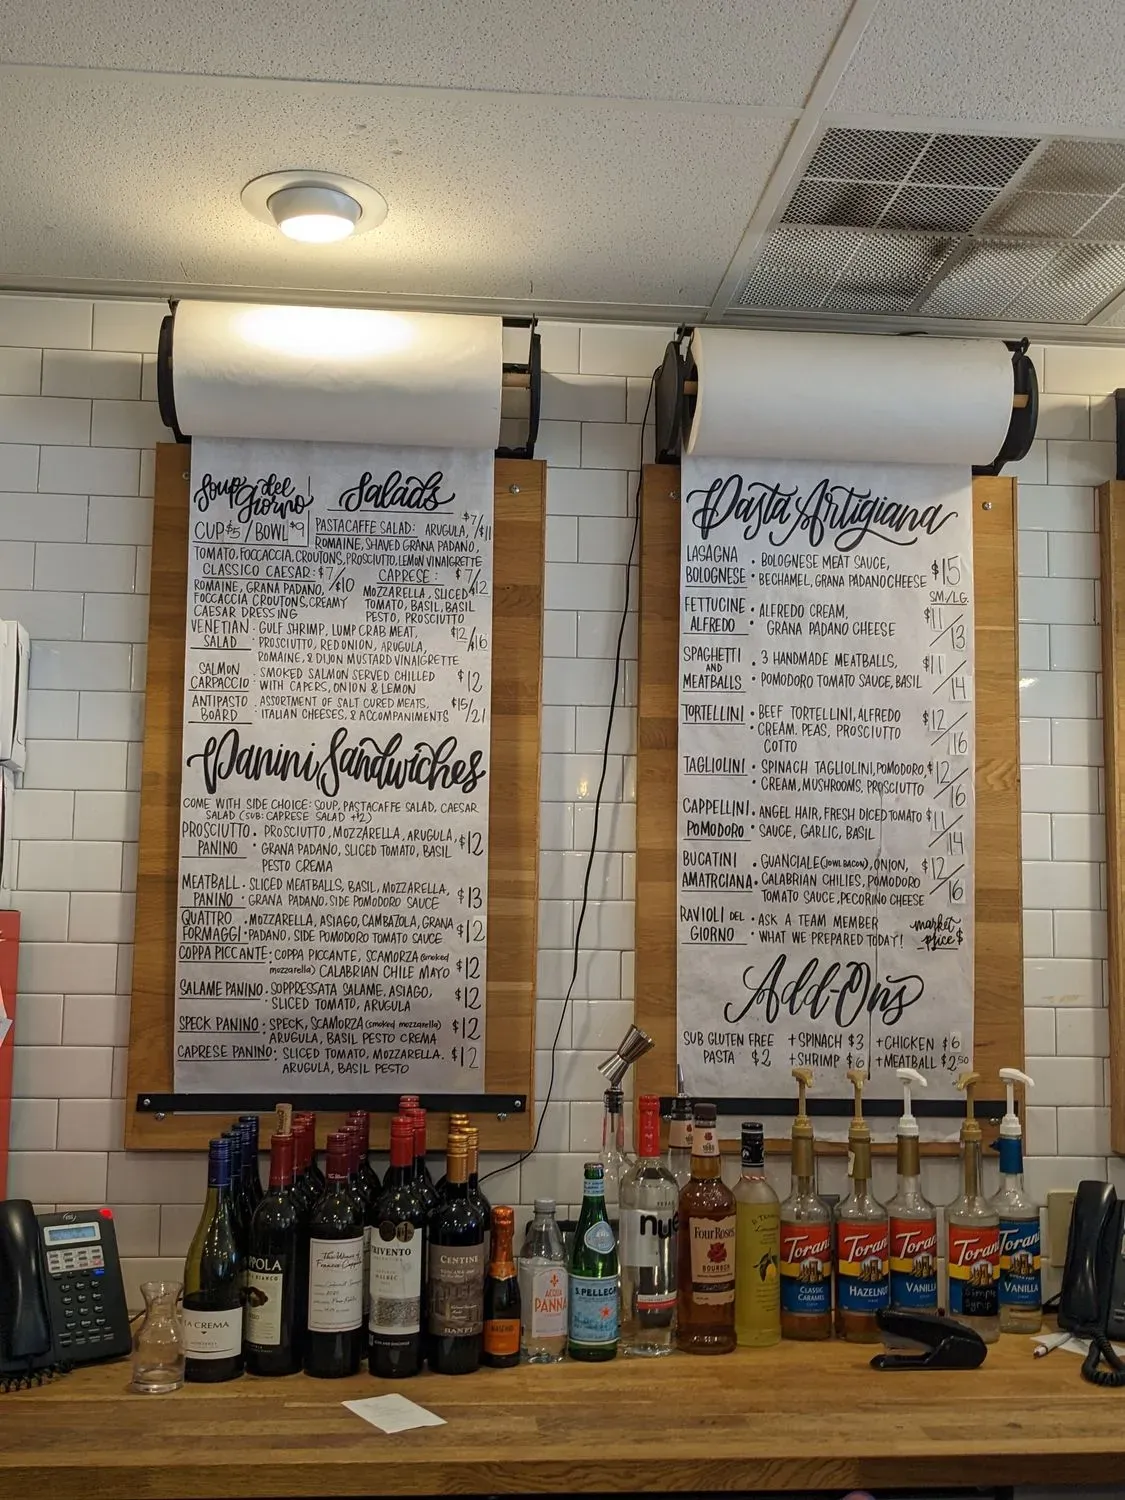 Soup del Giorno
CUP $5 / BOWL $9
Salads
PASTACAFFE SALAD: ARUGULA, $7/$11
ROMAINE, SHAVED GRANA PADANO,
TOMATO, FOCCACCIA, CROUTONS, PROSCIUTTO, LEMON VINAIGRETTE
CLASSICO CAESAR: $7/$10
ROMAINE, GRANA PADANO,
FOCCACCIA CROUTONS, CREAMY
CAESAR DRESSING
CAPRESE: $7/$12
MOZZARELLA, SLICED
TOMATO, BASIL, BASIL
PESTO, PROSCIUTTO
VENETIAN SALAD · GULF SHRIMP, LUMP CRAB MEAT, $12/$16
PROSCIUTTO, RED ONION, ARUGULA,
ROMAINE, & DIJON MUSTARD VINAIGRETTE
SALMON CARPACCIO · SMOKED SALMON SERVED CHILLED $12
WITH CAPERS, ONION & LEMON
ANTIPASTO BOARD · ASSORTMENT OF SALT CURED MEATS, $15/21
ITALIAN CHEESES, & ACCOMPANIMENTS
Panini Sandwiches
COME WITH SIDE CHOICE: SOUP, PASTACAFFE SALAD, CAESAR
SALAD (SUB: CAPRESE SALAD +$2)
PROSCIUTTO PANINO · PROSCIUTTO, MOZZARELLA, ARUGULA, $12
GRANA PADANO, SLICED TOMATO, BASIL
PESTO CREMA
MEATBALL PANINO · SLICED MEATBALLS, BASIL, MOZZARELLA, $13
GRANA PADANO, SIDE POMODORO SAUCE
QUATTRO FORMAGGI · MOZZARELLA, ASIAGO, CAMBAZOLA, GRANA $12
PADANO, SIDE POMODORO TOMATO SAUCE
COPPA PICCANTE: COPPA PICCANTE, SCAMORZA (smoked $12
mozzarella) CALABRIAN CHILE MAYO
SALAME PANINO: SOPPRESSATA SALAME, ASIAGO, $12
SLICED TOMATO, ARUGULA
SPECK PANINO: SPECK, SCAMORZA (smoked mozzarella) $12
ARUGULA, BASIL PESTO CREMA
CAPRESE PANINO: SLICED TOMATO, MOZZARELLA. $12
ARUGULA, BASIL PESTO
Pasta Artigiana
LASAGNA BOLOGNESE · BOLOGNESE MEAT SAUCE, $15
· BECHAMEL, GRANA PADANO CHEESE
SM/LG
FETTUCINE ALFREDO · ALFREDO CREAM, $11/13
GRANA PADANO CHEESE
SPAGHETTI AND MEATBALLS · 3 HANDMADE MEATBALLS, $11/14
· POMODORO TOMATO SAUCE, BASIL
TORTELLINI · BEEF TORTELLINI, ALFREDO $12/16
CREAM. PEAS, PROSCIUTTO
COTTO
TAGLIOLINI · SPINACH TAGLIOLINI, POMODORO, $12/16
CREAM, MUSHROOMS, PROSCIUTTO
CAPPELLINI POMODORO · ANGEL HAIR, FRESH DICED TOMATO $11/14
SAUCE, GARLIC, BASIL
BUCATINI AMATRCIANA · GUANCIALE (JOWL BACON), ONION, $12/16
CALABRIAN CHILIES, POMODORO
TOMATO SAUCE, PECORINO CHEESE
RAVIOLI DEL GIORNO · ASK A TEAM MEMBER market price $
· WHAT WE PREPARED TODAY!
Add-Ons
SUB GLUTEN FREE PASTA $2
+SPINACH $3
+SHRIMP $6
+CHICKEN $6
+MEATBALL $2.50
LA CREMA
The Wines of
Francis Coppola
TRIVENTO
MALBEC
CENTINE
BANFI
ACQUA
PANNA
S.PELLEGRINO
Four Roses
BOURBON
Torani
CLASSIC
CARAMEL
Torani
HAZELNUT
Torani
VANILLA
Torani
Simple
Syrup
Torani
VANILLA